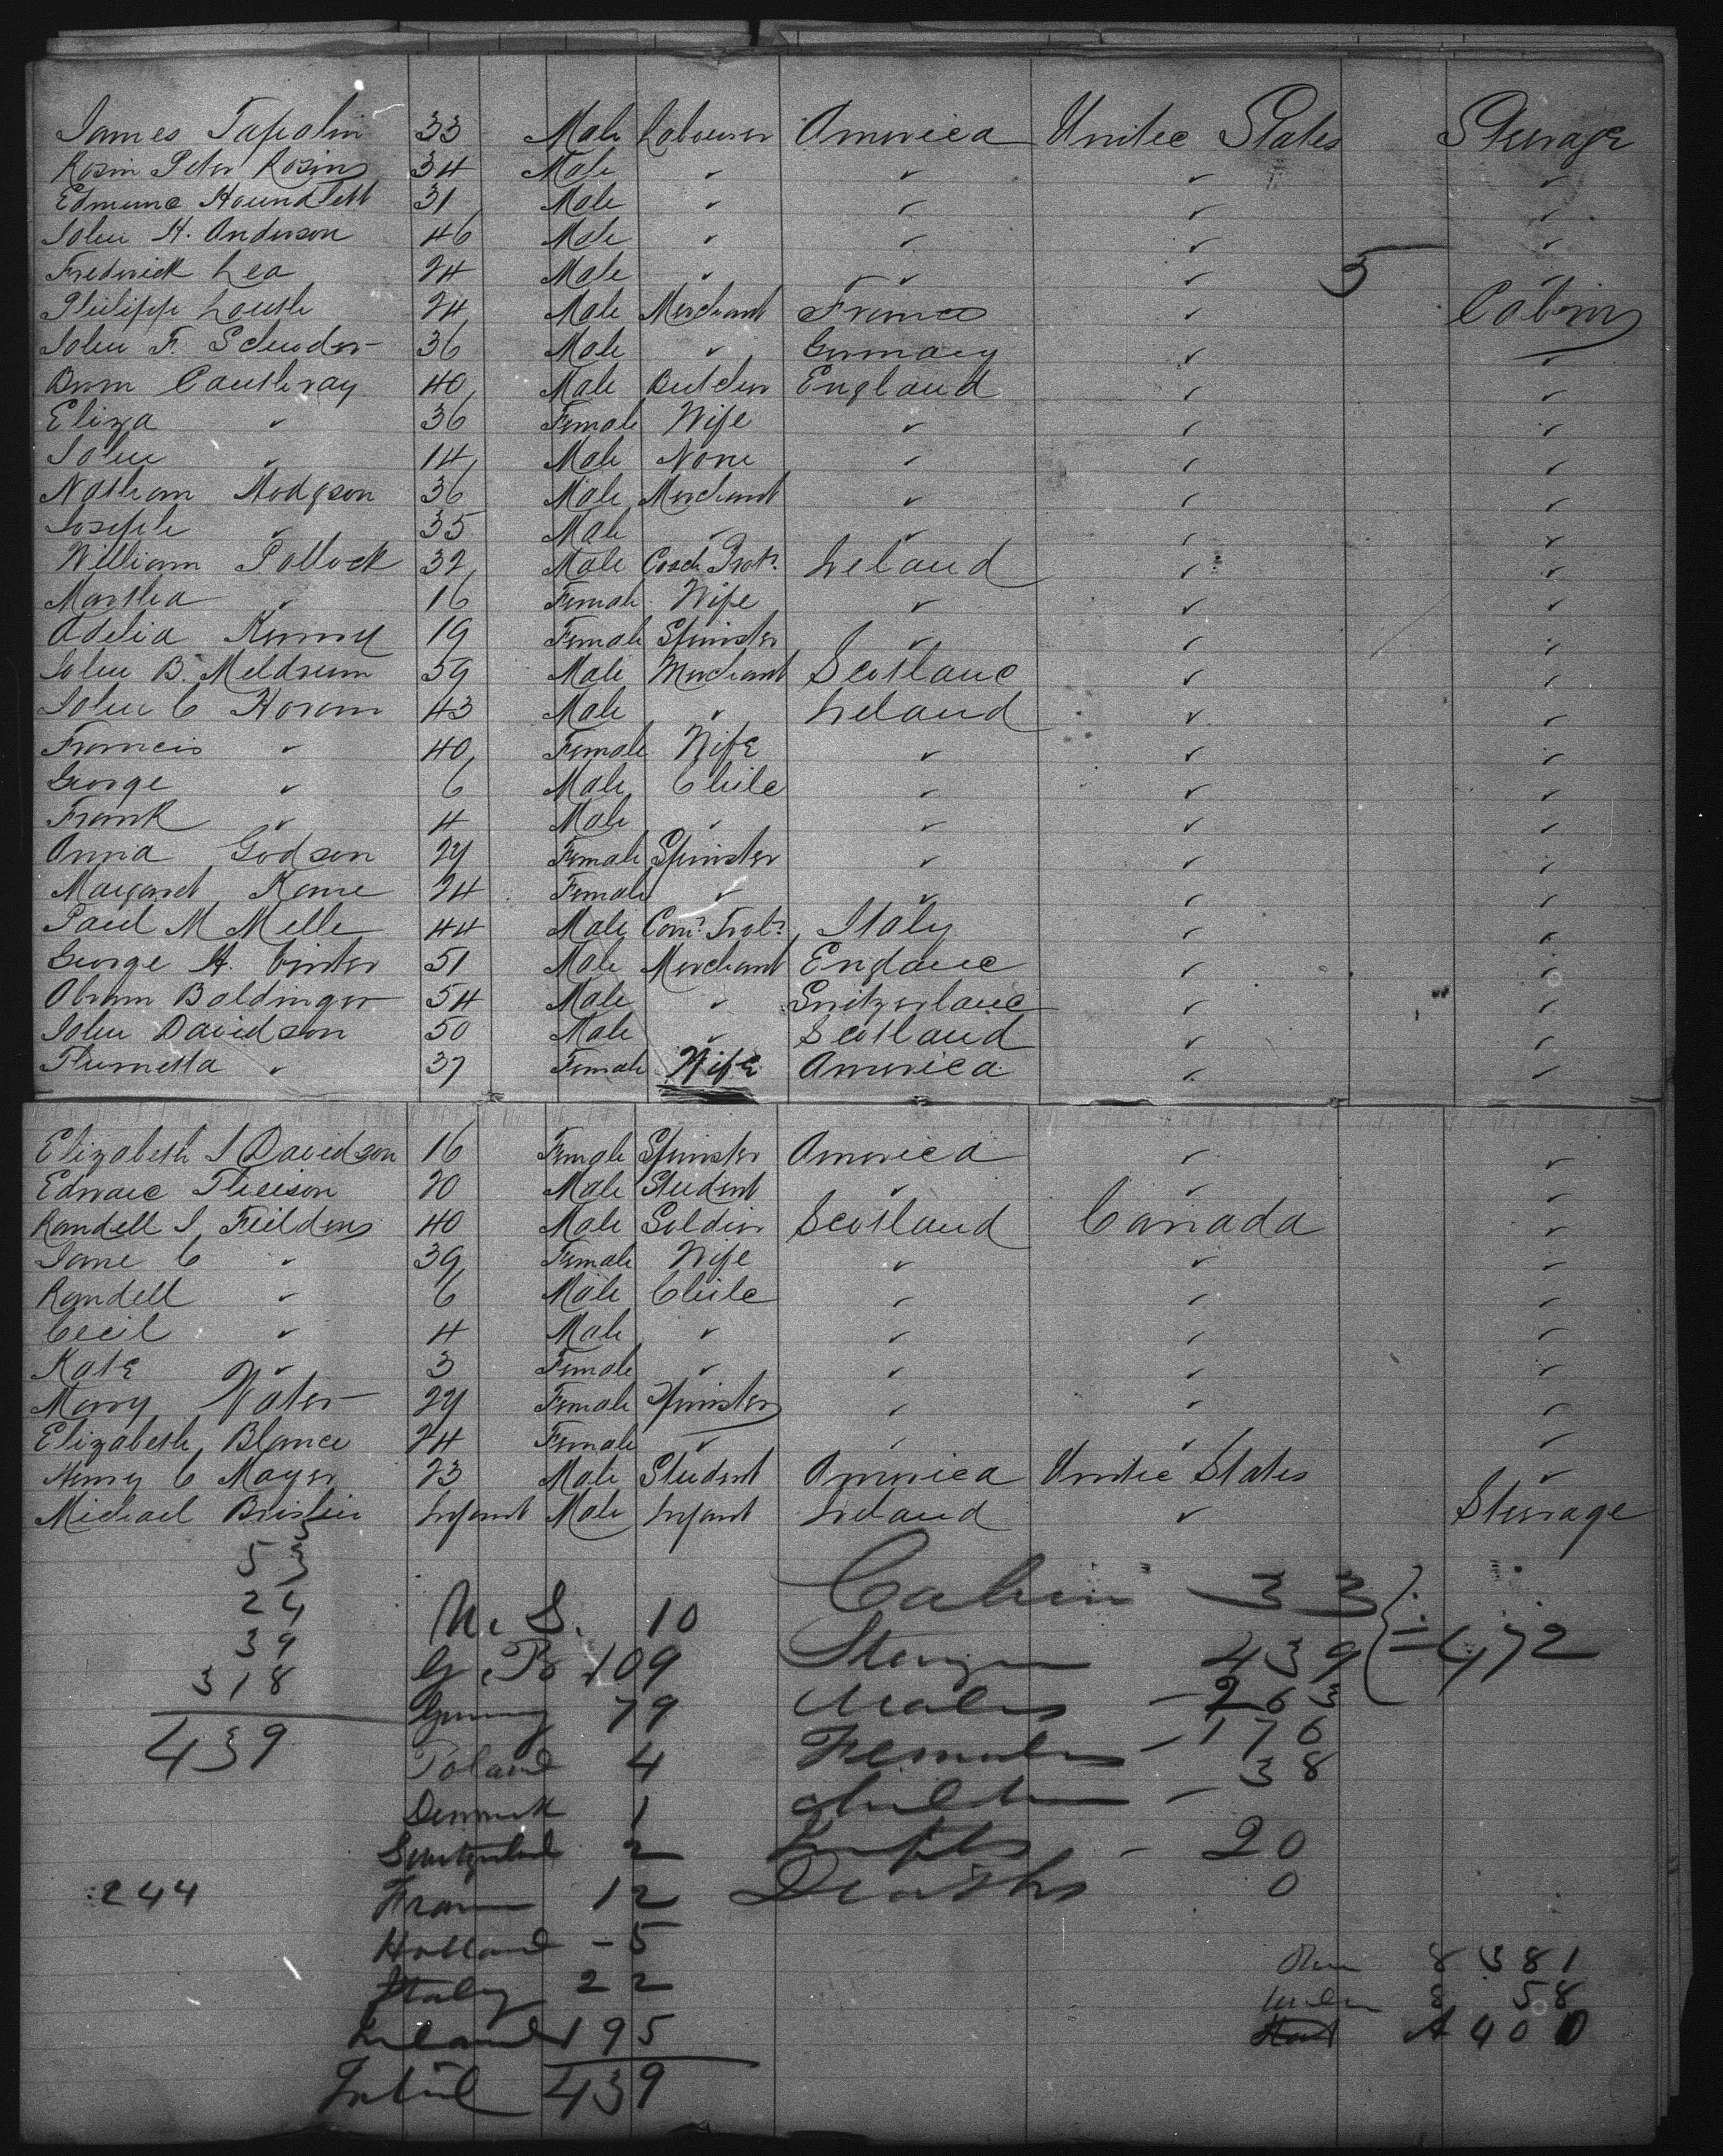 James Tapolin 33 Male Labourer America United States Steerage
Rosin Peter Rosin 34 Male ✓ ✓ ✓ ✓
Edmund Houndlett 31 Male ✓ ✓ ✓ ✓
John H. Anderson 46 Male ✓ ✓ ✓ ✓
Frederick Lea 24 Male ✓ ✓ ✓ 5 ✓
Philipp Louth 24 Male Merchant France ✓ Cabin
John F. Schuder 36 Male ✓ Germany ✓ ✓
Cautheray 40 Male Butcher England ✓ ✓
Eliza ✓ 36 Female Wife ✓ ✓ ✓
John ✓ 14 Male None ✓ ✓ ✓
Nathan Hodgson 36 Male Merchant ✓ ✓ ✓
Joseph ✓ 35 Male ✓ ✓ ✓ ✓
William Pollock 32 Male Ireland ✓ ✓
Martha ✓ 16 Female Wife ✓ ✓ ✓
Adelia Kenny 19 Female Spinster ✓ ✓ ✓
John B. Meldrum 59 Male Merchant Scotland ✓ ✓
John C Horam 43 Male ✓ Ireland ✓ ✓
Francis ✓ 40 Female Wife ✓ ✓ ✓
George ✓ 6 Male Child ✓ ✓ ✓
Frank ✓ 4 Male ✓ ✓ ✓ ✓
Anna Godson 24 Female Spinster ✓ ✓ ✓
Margaret Kane 24 Female ✓ ✓ ✓ ✓
Paul M Melle 44 Male Italy ✓ ✓
George H. 51 Male Merchant England ✓ ✓
Abram Baldinger 54 Male ✓ Switzerland ✓ ✓
John Davidson 50 Male ✓ Scotland ✓ ✓
Flumetta ✓ 37 Female Wife America ✓ ✓
Elizabeth J Davidson 16 Female Spinster America ✓ ✓
Edward Theison 20 Male Student ✓ ✓ ✓
Randell J. Feilden 40 Male Soldier Scotland Canada ✓
Jane C ✓ 39 Female Wife ✓ ✓ ✓
Randell ✓ 6 Male Child ✓ ✓ ✓
Cecil ✓ 4 Male ✓ ✓ ✓ ✓
Kate ✓ 3 Female ✓ ✓ ✓ ✓
Mary Water 24 Female Spinster ✓ ✓ ✓
Elizabeth Blance 24 Female ✓ ✓ ✓ ✓
Henry C Mayer 23 Male Student America United States ✓
Michael Brislin Infant Male Infant Ireland ✓ Steerage
53
24
39
318
439
244
U. S. 10
G. B 109
Germy 79
Poland 4
Denmark 1
Switzerland 2
France 12
Holland - 5
Italy 22
Ireland 195
Total 439
Cabin 33
Steerage 439 = 472
Males - 263
Females - 176
Children - 38
Infts - 20
Deaths 0
8381
8 58
A 400